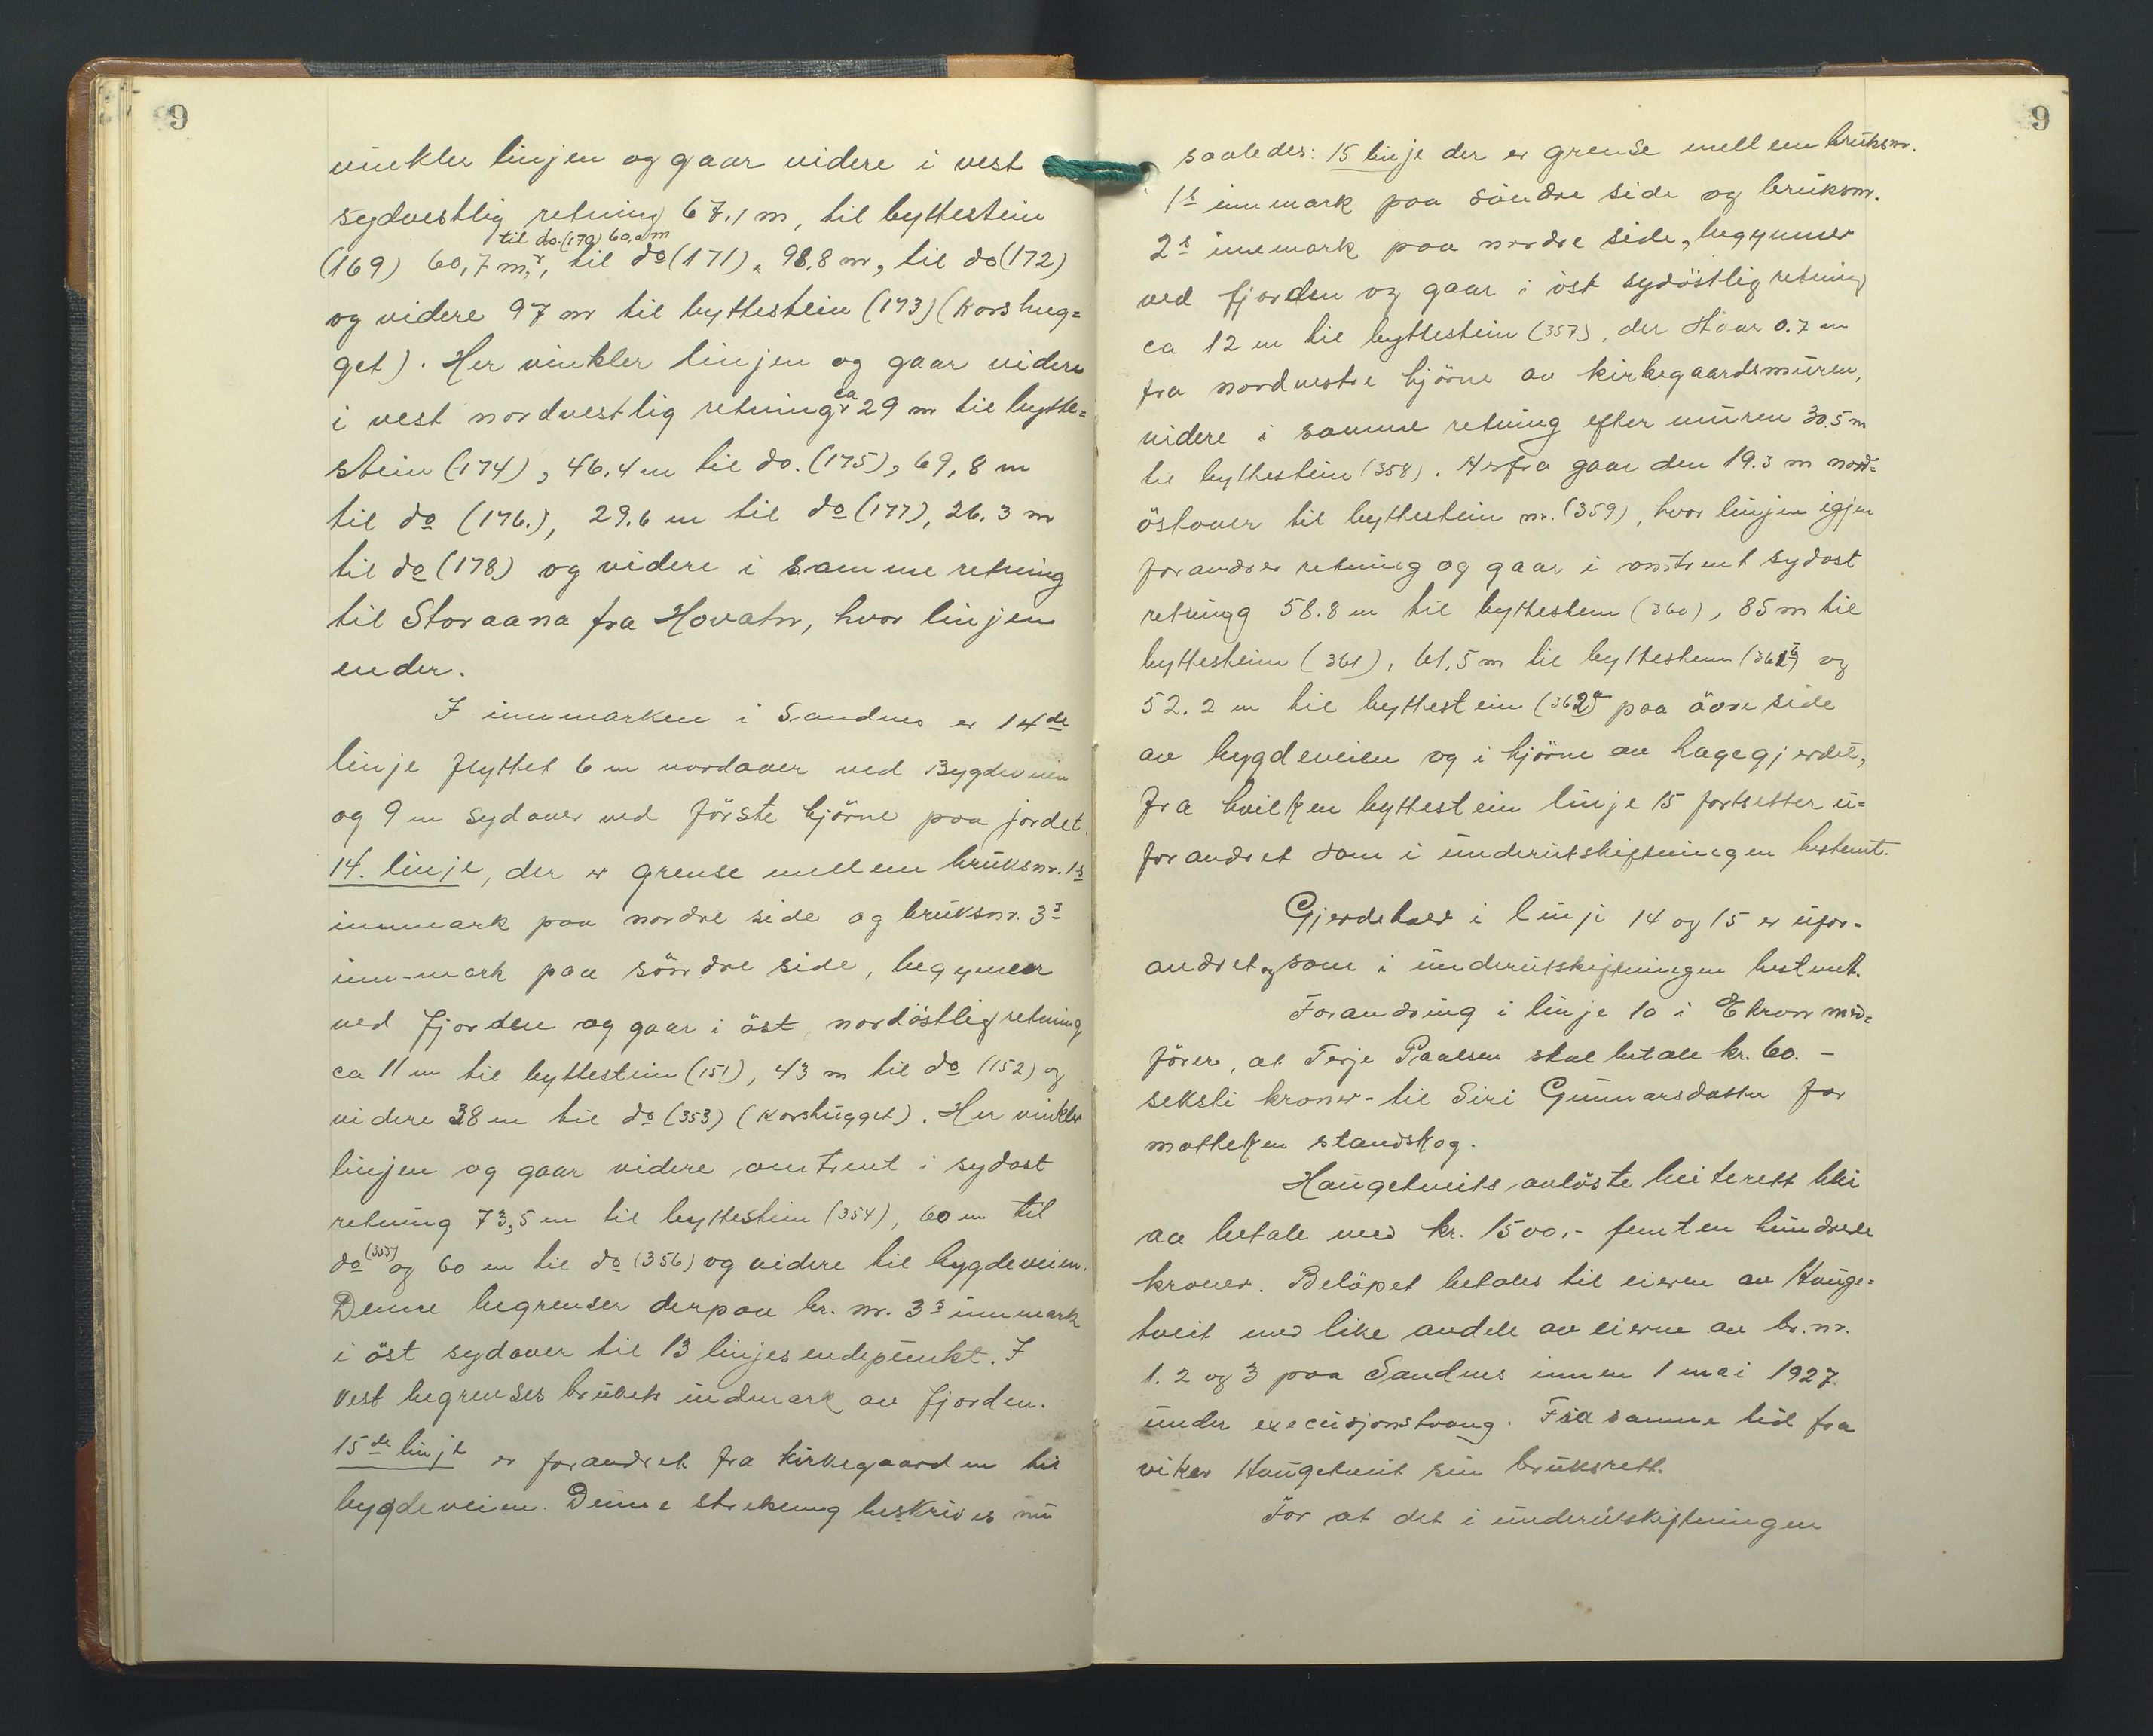 9
vinkler linjen og gaar videre i vest
sydvestlig retning 67,1 m, til byttestein
til do. (170) 60,0 m
(169) 60,7 m, til do (171), 98.8 m, til do (172)
og videre 97 m til byttestein (173) (korshug=
get). Her vinkler linjen og gaar videre
i vest nordvestlig retning ca 29 m til bytte=
stein (174), 46.4 m til do. (175), 69,8 m
til do (176.), 29.6 m til do (177), 26.3 m
til do (178) og videre i samme retning
til Storaana fra Hovatn, hvor linjen
ender.
I innmarken i Sandnes er 14de
linje flyttet 6 m nordover ved Bygdeveien
og 9 m sydover ved förste hjörne paa jordet.
14. linje, der er grense mellem bruksnr. 1s
innmark paa nordre side og bruksnr. 3s
inn-mark paa söndre side, begynner
ved fjorden og gaar i öst nordöstlig retning
ca 11 m til byttestein (151), 43 m til do (152) og
videre 38 m til do (353) (korshugget). Her vinkler
linjen og gaar videre omtrent i sydost
retning 73,5 m til byttestein (354), 60 m til
do (355) og 60 m til do (356) og videre til bygdeveien.
Denne begrenser derpaa br. nr. 3s innmark
i öst sydover til 13 linjes endepunkt. I
vest begrenses brukets indmark av fjorden.
15de linje er forandret fra kirkegaarden til
bygdeveien. Denne strekning beskrives nu
9
saaledes: 15 linje der er grense mellem bruksnr.
1s innmark paa söndre side og bruksnr.
2s innmark paa nordre side, begynner
ved fjorden og gaar i öst sydöstlig retning
ca 12 m til byttestein (357), der staar 0.7 m
fra nordvestre hjörne av kirkegaardsmuren,
videre i samme retning efter muren 30.5 m
til byttestein (358). Herfra gaar den 19.3 m nord=
östover til byttestein nr. (359), hvor linjen igjen
forandrer retning og gaar i omtrent sydost
retning 58.8 m til byttestein (360), 85 m til
byttestein (361), 61,5 m til byttestein (362b) og
52.2 m til byttestein (362a) paa övre side
av bygdeveien og i hjörne av hagegjerdet,
fra hvilken byttestein linje 15 fortsetter u=
forandret som i underutskiftningen bestemt.
Gjerdehold i linje 14 og 15 er ufor-
andret og som i underutskiftningen bestemt.
Forandring i linje 10 i Ekron med=
förer, at Terje Paalsen skal betale kr. 60. -
seksti kroner - til Siri Gunnarsdatter for
motteken standskog.
Haugetveits avlöste beiterett blir
aa betale med kr. 1500,- femten hundrede
kroner. Belöpet betales til eieren av Hauge=
tveit med like andele av eierne av br. nr.
1. 2 og 3 paa Sandnes innen 1 mai 1927.
under execusjonstvang. Fra samme tid fra
viker Haugetveit sin bruksrett.
For at det i underutskiftningen